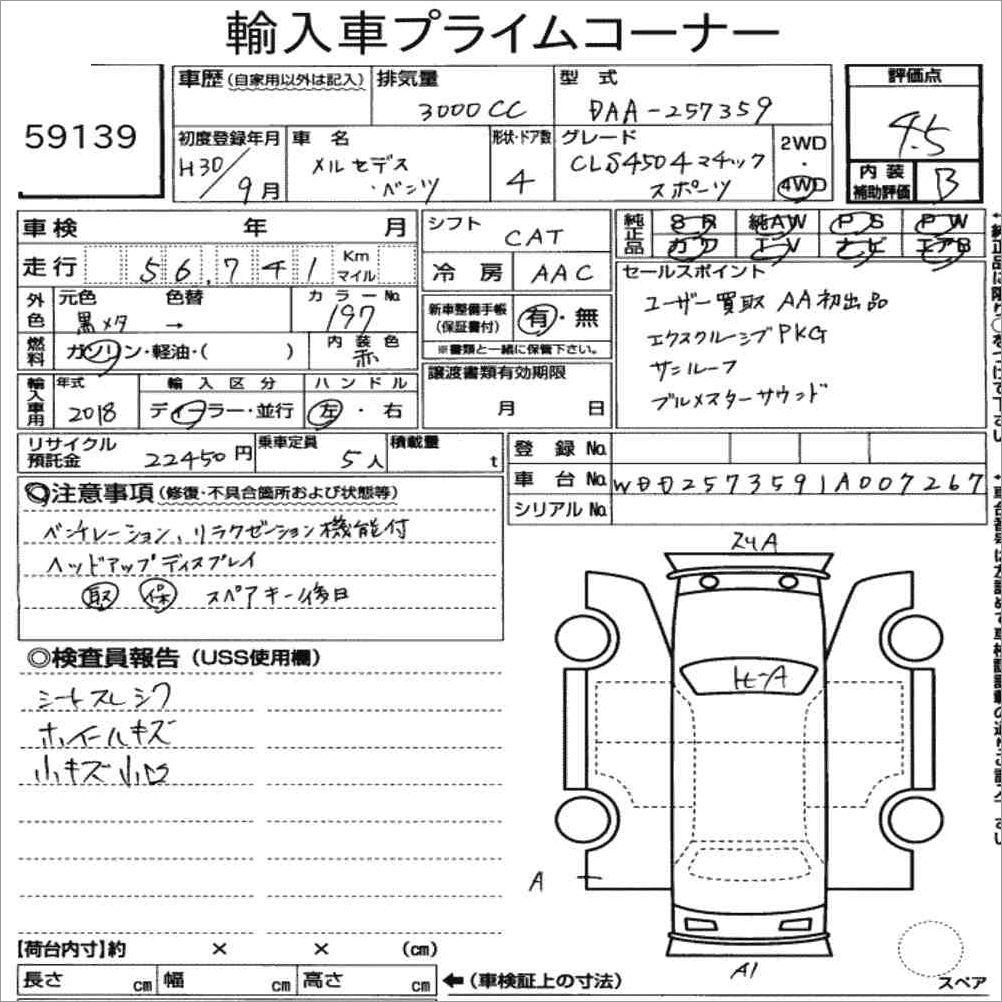 輸入車プライムコーナー
59139
車歴 (自家用以外は記入)
排気量
3000CC
型式
DAA-257359
評価点
4.5
初度登録年月
H30/9月
車名
メルセデス
・ベンツ
形状・ドア数
4
グレード
CLS450 4マチック
スポーツ
2WD
・
4WD
内装
補助評価
B
車検 年 月
走行 56,741 Km
マイル
シフト
CAT
冷房 AAC
純正品
SR 純AW PS PW
カワ TV ナビ エアB
外色
元色 色替
黒メタ →
カラーNo.
197
燃料
ガソリン・軽油・( )
内装色
赤
新車整備手帳
(保証書付)
有・無
※書類と一緒に保管下さい。
セールスポイント
ユーザー買取 AA初出品
エクスクルーシブPKG
サンルーフ
ブルメスターサウンド
輸入車用
年式
2018
輸入区分
ディーラー・並行
ハンドル
左・右
譲渡書類有効期限
月 日
リサイクル
預託金
22450円
乗車定員
5人
積載量
t
登録No.
車台No. WDD2573591A007267
シリアルNo.
注意事項 (修復・不具合箇所および状態等)
ベンチレーション、リラクゼーション機能付
ヘッドアップディスプレイ
取 保 スペアキー後日
◎検査員報告 (USS使用欄)
シートスレシワ
ホイールキズ
小キズ小凹
スリA
ヒーA
A
A1
スペア
【荷台内寸】約 × × (cm)
長さ cm 幅 cm 高さ cm
←(車検証上の寸法)